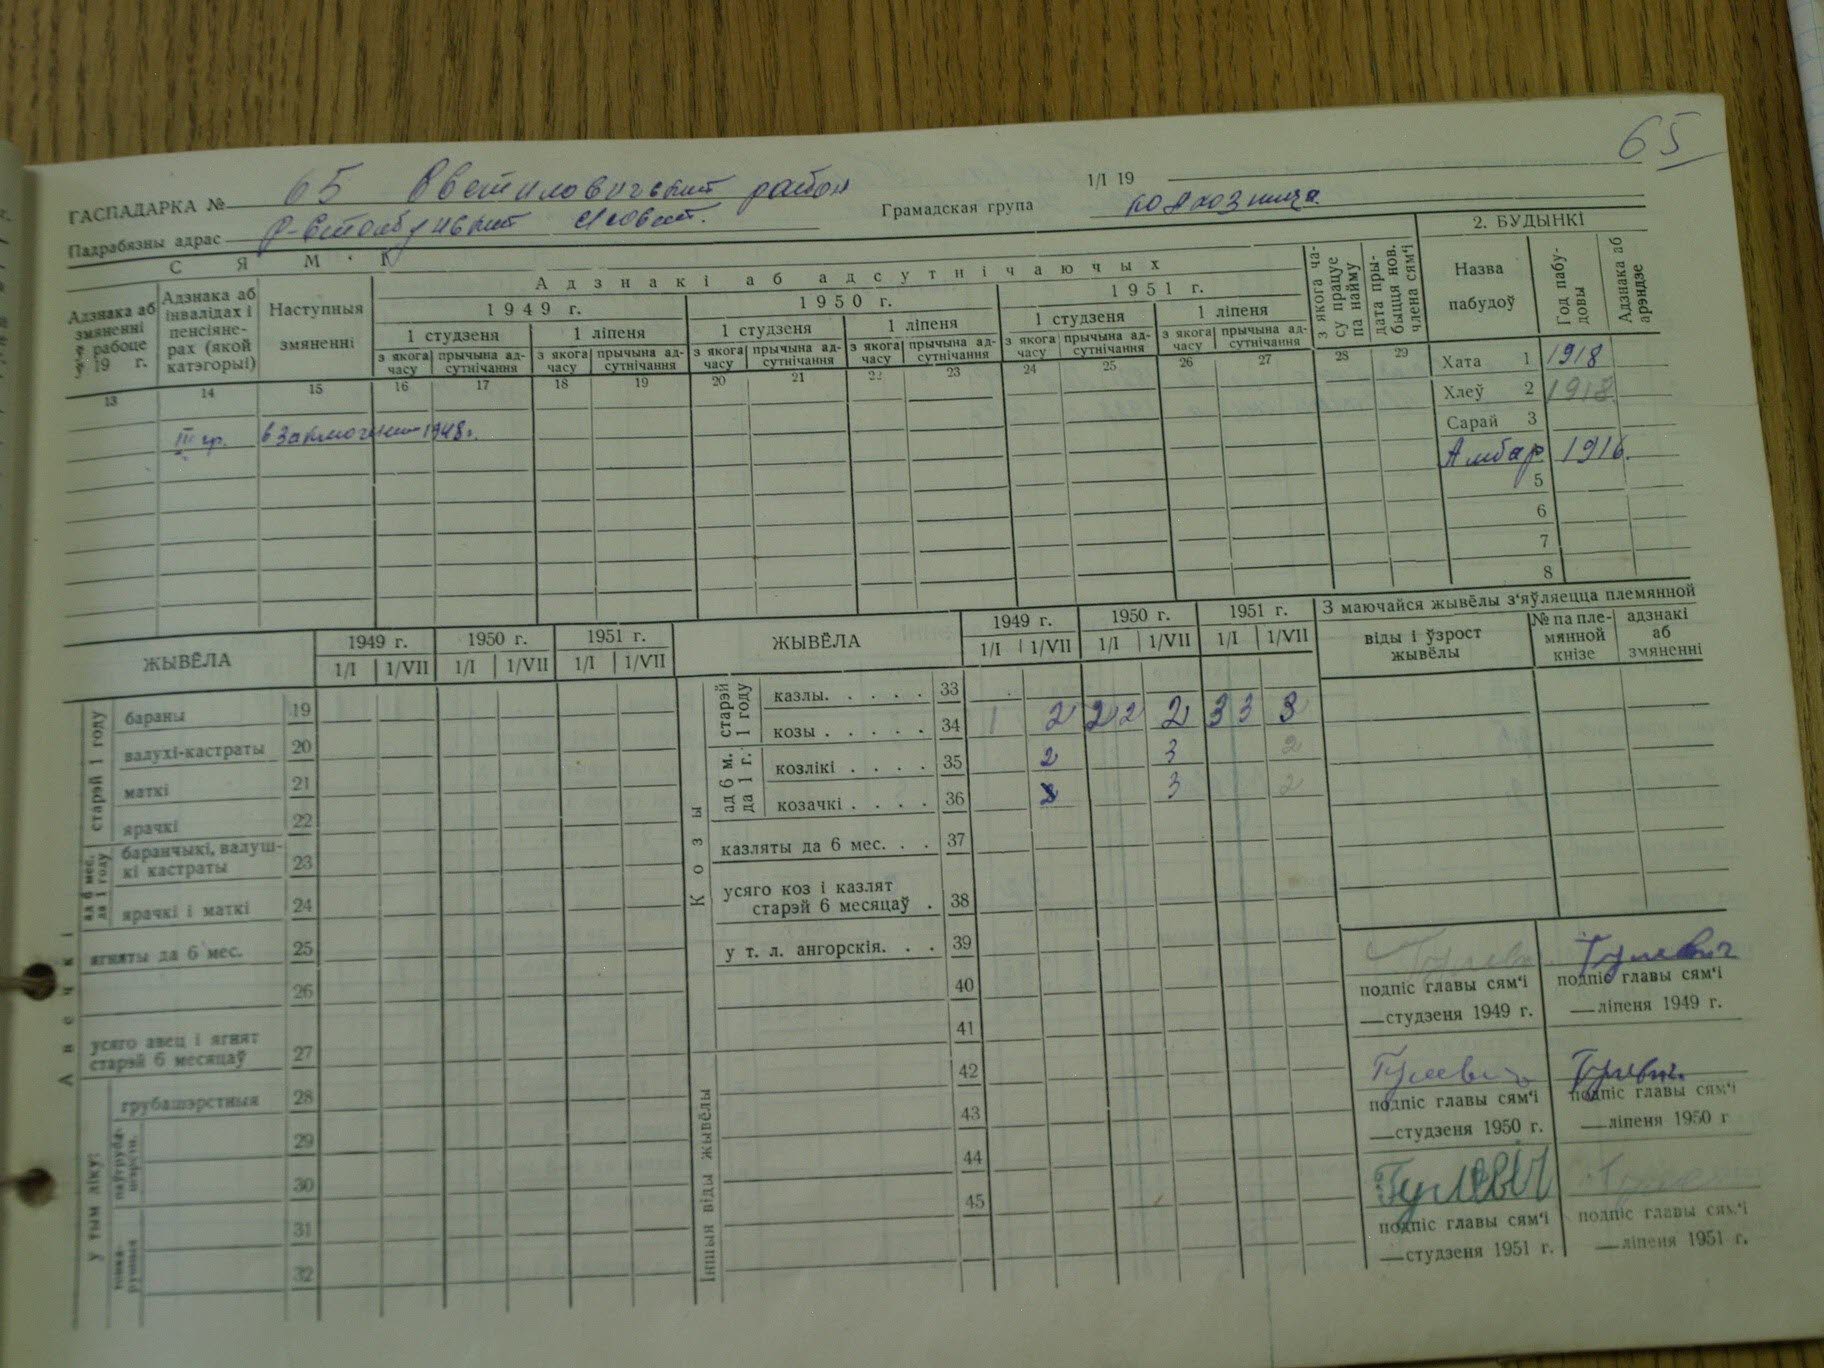 65
ГАСПАДАРКА № 65 район
1/I 19
Падрабязны адрас
Грамадская група колхозница
С Я М ' Я
Адзнака аб змяненні ў рабоце ў 19 г.
Адзнака аб інвалідах і пенсіянерах (якой катэгорыі)
Наступныя змяненні
Адзнакі аб адсутнічаючых
1949 г. 1950 г. 1951 г.
1 студзеня 1 ліпеня 1 студзеня 1 ліпеня 1 студзеня 1 ліпеня
з якога часу прычына ад-сутнічання з якога часу прычына ад-сутнічання з якога часу прычына ад-сутнічання з якога часу прычына ад-сутнічання з якога часу прычына ад-сутнічання з якога часу прычына ад-сутнічання
з якога ча-су працуе па найму
дата пры-быцця нов. члена сям'і
2. БУДЫНКІ
Назва пабудоў
Год пабу-довы
Адзнака аб арэндзе
13 14 15 16 17 18 19 20 21 22 23 24 25 26 27 28 29
III гр. 1948г.
Хата 1 1918
Хлеў 2 1918
Сарай 3
Амбар 1916.
5
6
7
8
ЖЫВЁЛА
1949 г. 1950 г. 1951 г.
1/I 1/VII 1/I 1/VII 1/I 1/VII
Авечкі
старэй 1 году
бараны 19
валухі-кастраты 20
маткі 21
ярачкі 22
ад 6 мес. да 1 году
баранчыкі, валуш-
кі кастраты 23
ярачкі і маткі 24
ягняты да 6 мес. 25
26
усяго авец і ягнят
старэй 6 месяцаў 27
у тым ліку:
грубашэрстныя 28
29
30
31
32
ЖЫВЁЛА
1949 г. 1950 г. 1951 г.
1/I 1/VII 1/I 1/VII 1/I 1/VII
Козы
старэй 1 году
казлы. . . . . 33
козы . . . . . 34 1 2 2 2 2 3 3 3
ад 6 м. да 1 г.
козлікі . . . . 35 2 3 2
козачкі . . . . 36 3 2
казляты да 6 мес. . . 37
усяго коз і казлят
старэй 6 месяцаў . 38
у т. л. ангорскія. . . 39
40
41
Іншыя віды жывёлы
42
43
44
45
З маючайся жывёлы з'яўляецца племянной
віды і ўзрост жывёлы
№ па пле-мянной кнізе
адзнакі аб змяненні
Гулевич
подпіс главы сям'і
—студзеня 1949 г.
подпіс главы сям'і
—ліпеня 1949 г.
Гулевич
подпіс главы сям'і
—студзеня 1950 г.
подпіс главы сям'і
—ліпеня 1950 г
Гулевіч
подпіс главы сям'і
—студзеня 1951 г.
подпіс главы сям'і
—ліпеня 1951 г.